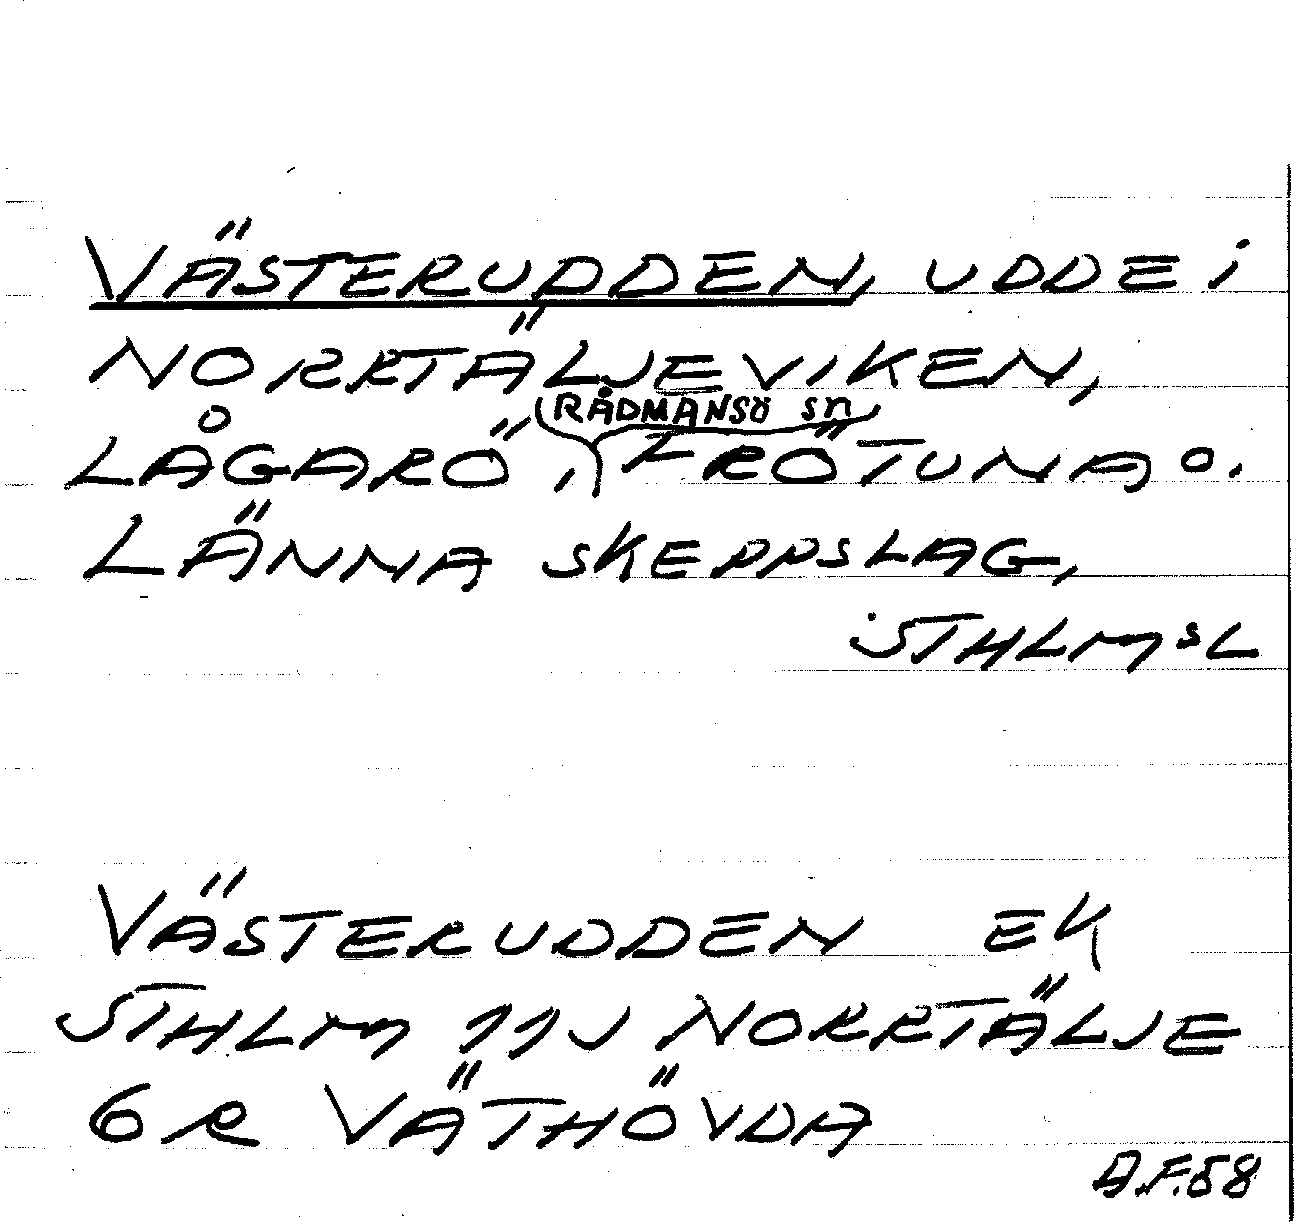 VÄSTERUDDEN, UDDE i
NORRTÄLJEVIKEN,
RÅDMANSÖ sn
LÅGARÖ, FRÖTUNA o.
LÄNNA SKEPPSLAG,
STHLMSL
VÄSTERUDDEN EK
STHLM 11J NORRTÄLJE
6R VÄTHÖVDA
A.F.58